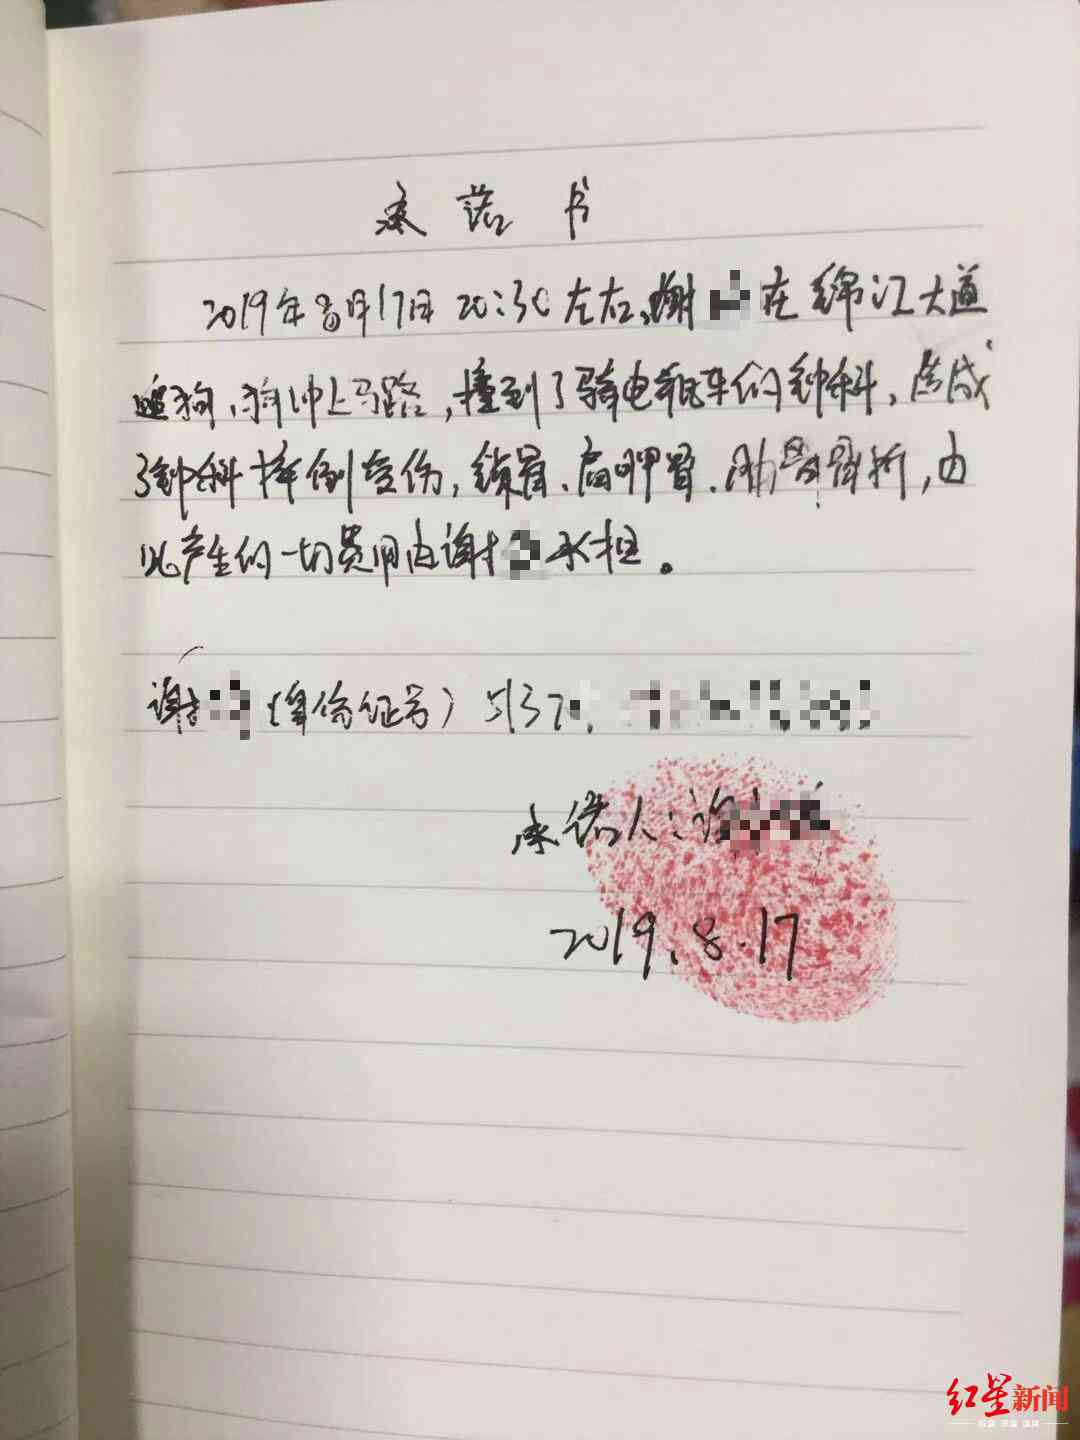 承诺书
2019年8月17日 20:30左右,谢在绵江大道
遛狗,狗冲上马路,撞到了骑电瓶车的钟科,造成
了钟科摔倒受伤,锁骨、肩胛骨、肋骨骨折,由
此产生的一切费用由谢承担。
谢(身份证号)5137
承诺人:谢
2019.8.17
红星新闻